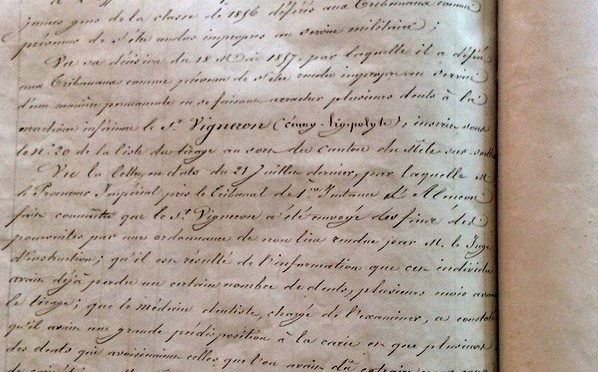 jeunes gens de la classe de 1856 déférés aux Tribunaux comme
prévenus de s'être rendus impropres au service militaire ;
Vu sa décision du 18 Mai 1857, par laquelle il a déféré
aux Tribunaux comme prévenu de s'être rendu impropre au service
d'une manière permanente en se faisant arracher plusieurs dents à la
machoire inférieure le Sr. Vigneron (Hippolyte), inscrit sous
le No. 20 de la liste du tirage au sort du Canton du Mêle sur Sarthe
Vu la lettre en date du 21 Juillet dernier, par laquelle M.
le Procureur Impérial près le Tribunal de 1ère Instance d'Alençon
fait connaître que le Sr. Vigneron a été envoyé des fins des
poursuites par une ordonnance de non lieu rendue par M. le Juge
d'instruction ; qu'il est résulté de l'information que cet individu
avait déjà perdu un certain nombre de dents, plusieurs mois avant
le tirage ; que le médecin dentiste, chargé de l'examiner, a constaté
qu'il avait une grande prédisposition à la carie et que plusieurs
des dents qui avoisinaient celles que l'on avait dû extraire